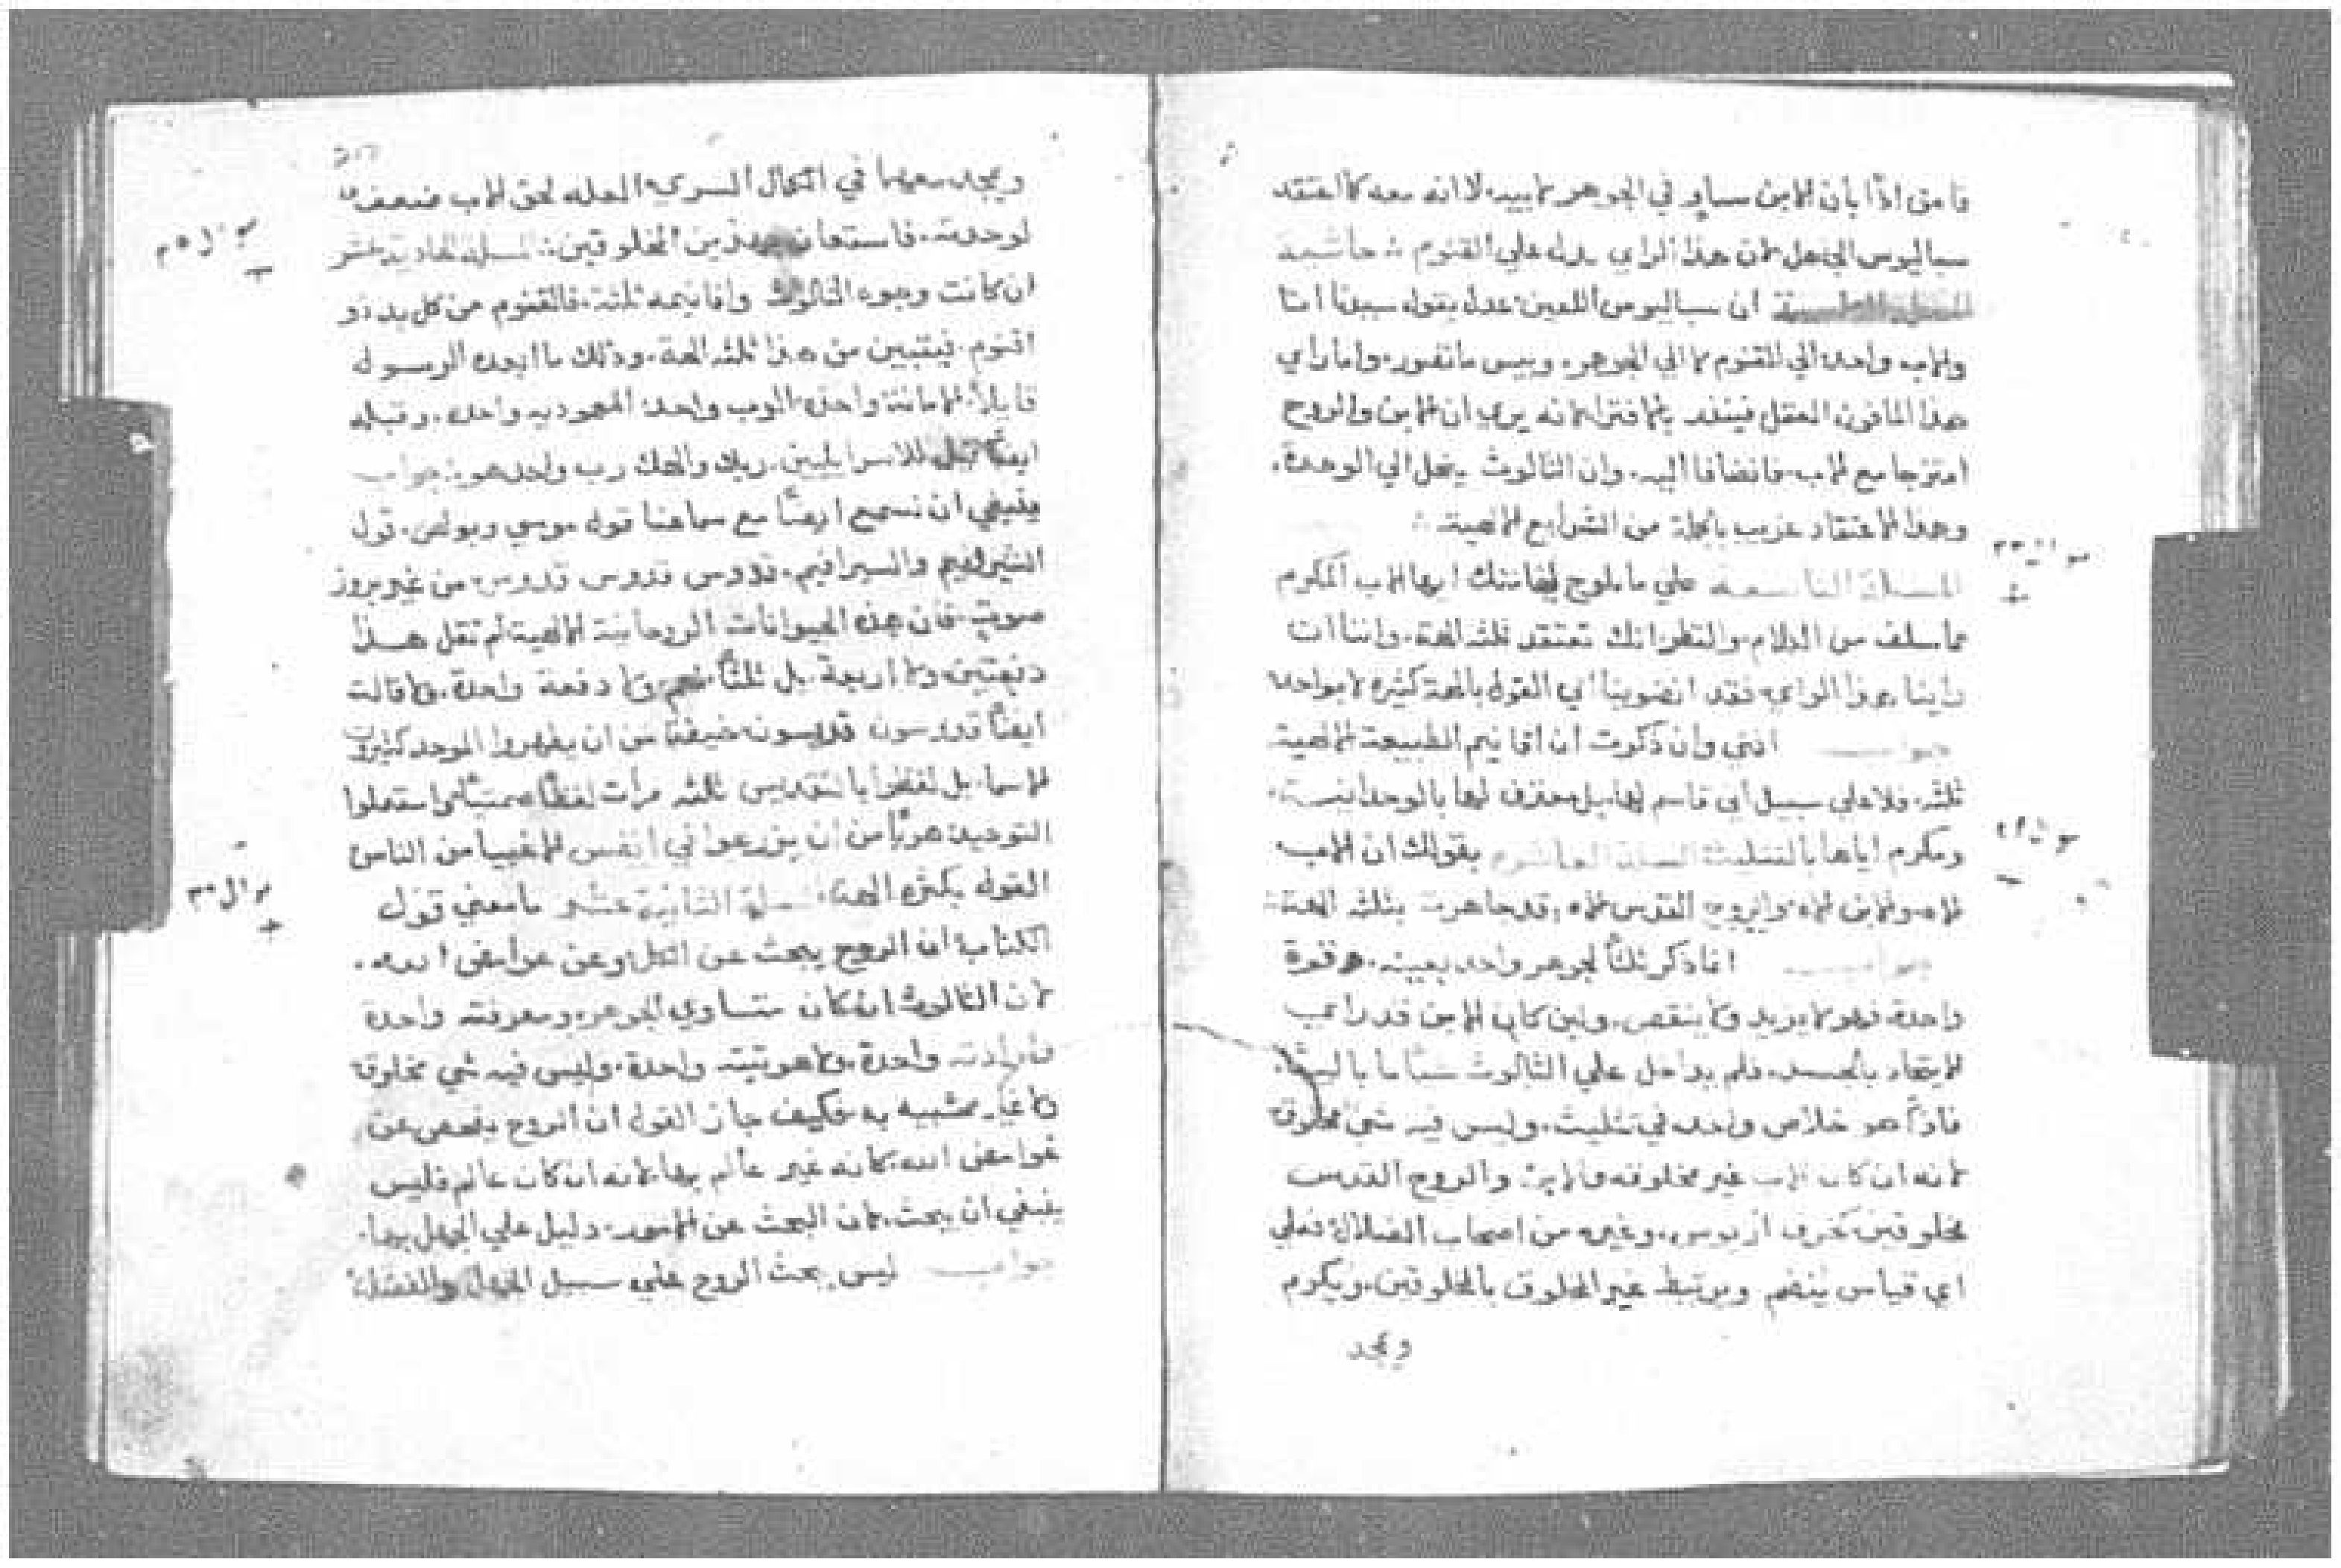 فامن اذًا بان الابن مساوٍ في الجوهر لابيه لا انه معه كما اعتقد
سباليوس الجاهل لان هذا الراي يدل على القنوم حاشية
ان سباليوس اللعين عدل بقول سيدنا انا
والاب واحد الي القنوم لا الي الجوهر وبيس ما تصور واما راي
هذا المافون العقل فينفذ بالافترا لانه يري ان الابن والروح
امتزجا مع الاب فانضافا اليه وان الثالوث ينحل الي الوحدة
وهذا الاعتقاد غريب بالجملة من الشرايع الالهية
سوال
المسلة التاسعة علي ما يلوح لفطنتك ايها الاب المكرم
مما سلف من الكلام والنظر انك تعتقد ثلثه الهة واننا ان
راينا هذا الراي فقد انضوينا الي القول بالهة كثيره لا بواحد
جواب انني وان ذكرت ان اقانيم الطبيعة الالهية
ثلثه فلا علي سبيل اني قاسم لها بل معترف لها بالوحدانية
سوال
ومكرم اياها بالتثليث المسلة العاشره بقولك ان الاب
اله والابن اله والروح القدس اله قد جاهرت بثلثه الهة
جواب انا ذكر ثلثًا لجوهر واحد بعينه وقوة
واحدة فهو لا يزيد ولا ينقص ولين كان الابن قد راي
الاتحاد بالجسد فلم يدخل علي الثالوث شيًا ما باليسًا
فاذًا هو خلاص واحد في تثليث وليس فيه شي مخلوق
لانه ان كان الاب غير مخلوقه والابن والروح القدس
مخلوقين كخرف اريوس وغيره من اصحاب الضلالة فعلي
اي قياس ينضم ويرتبط غير المخلوق بالمخلوقين ويكرم
ويمجد
ويمجد معهما في الكمال السوي العله لحق الاب ضعف
لوحدته فاستعان بهذين المخلوقين المسلة الحادية عشر
سوال
ان كانت وجوه الثالوث واقانيمه ثلثة فالقنوم من كل بد ذو
اقنوم فيتبين من هذا ثلثه الهة وذلك ما ابعده الرسول
قايلًا الامانة واحدة الرب واحد المعموديه واحده وقبله
ايضًا قيل للاسرايليين ربك والهك رب واحد هو جواب
ينبغي ان نسمع ايضًا مع سماعنا قول موسي وبولص قول
الشيروبيم والسيرافيم قدوس قدوس قدوس من غير بروز
صوت فان هذه الحيوانات الروحانية الالهية لم تقل هذا
دفعتين ولا اربعة بل ثلثًا ولا دفعة واحدة ولا قالت
ايضًا قدوسون قديسون خيفتًا من ان يظهروا الموحد كثيرون
الاسما بل لفظوا بالتقديس ثلثه مرات واستعملوا
التوحيد هربًا من ان يزرعوا في انفس الاغبيا من الناس
سوال
القول بكثره الهة المسلة الثانية عشر ما معني قول
الكتاب ان الروح يبحث عن الكل وعن غوامض الله
لان الثالوث ان كان متساوي الجوهر ومعرفته واحدة
وارادته واحدة ولاهوتيته واحدة وليس فيه شي مخلوق
ولا غير شبيه به فكيف جاز القول ان الروح يفحص عن
غوامض الله كانه غير عالم بها لانه ان كان عالم فليس
ينبغي ان يبحث لان البحث عن الامور دليل علي الجهل بها
جواب ليس بحث الروح علي سبيل الجهل والفضل